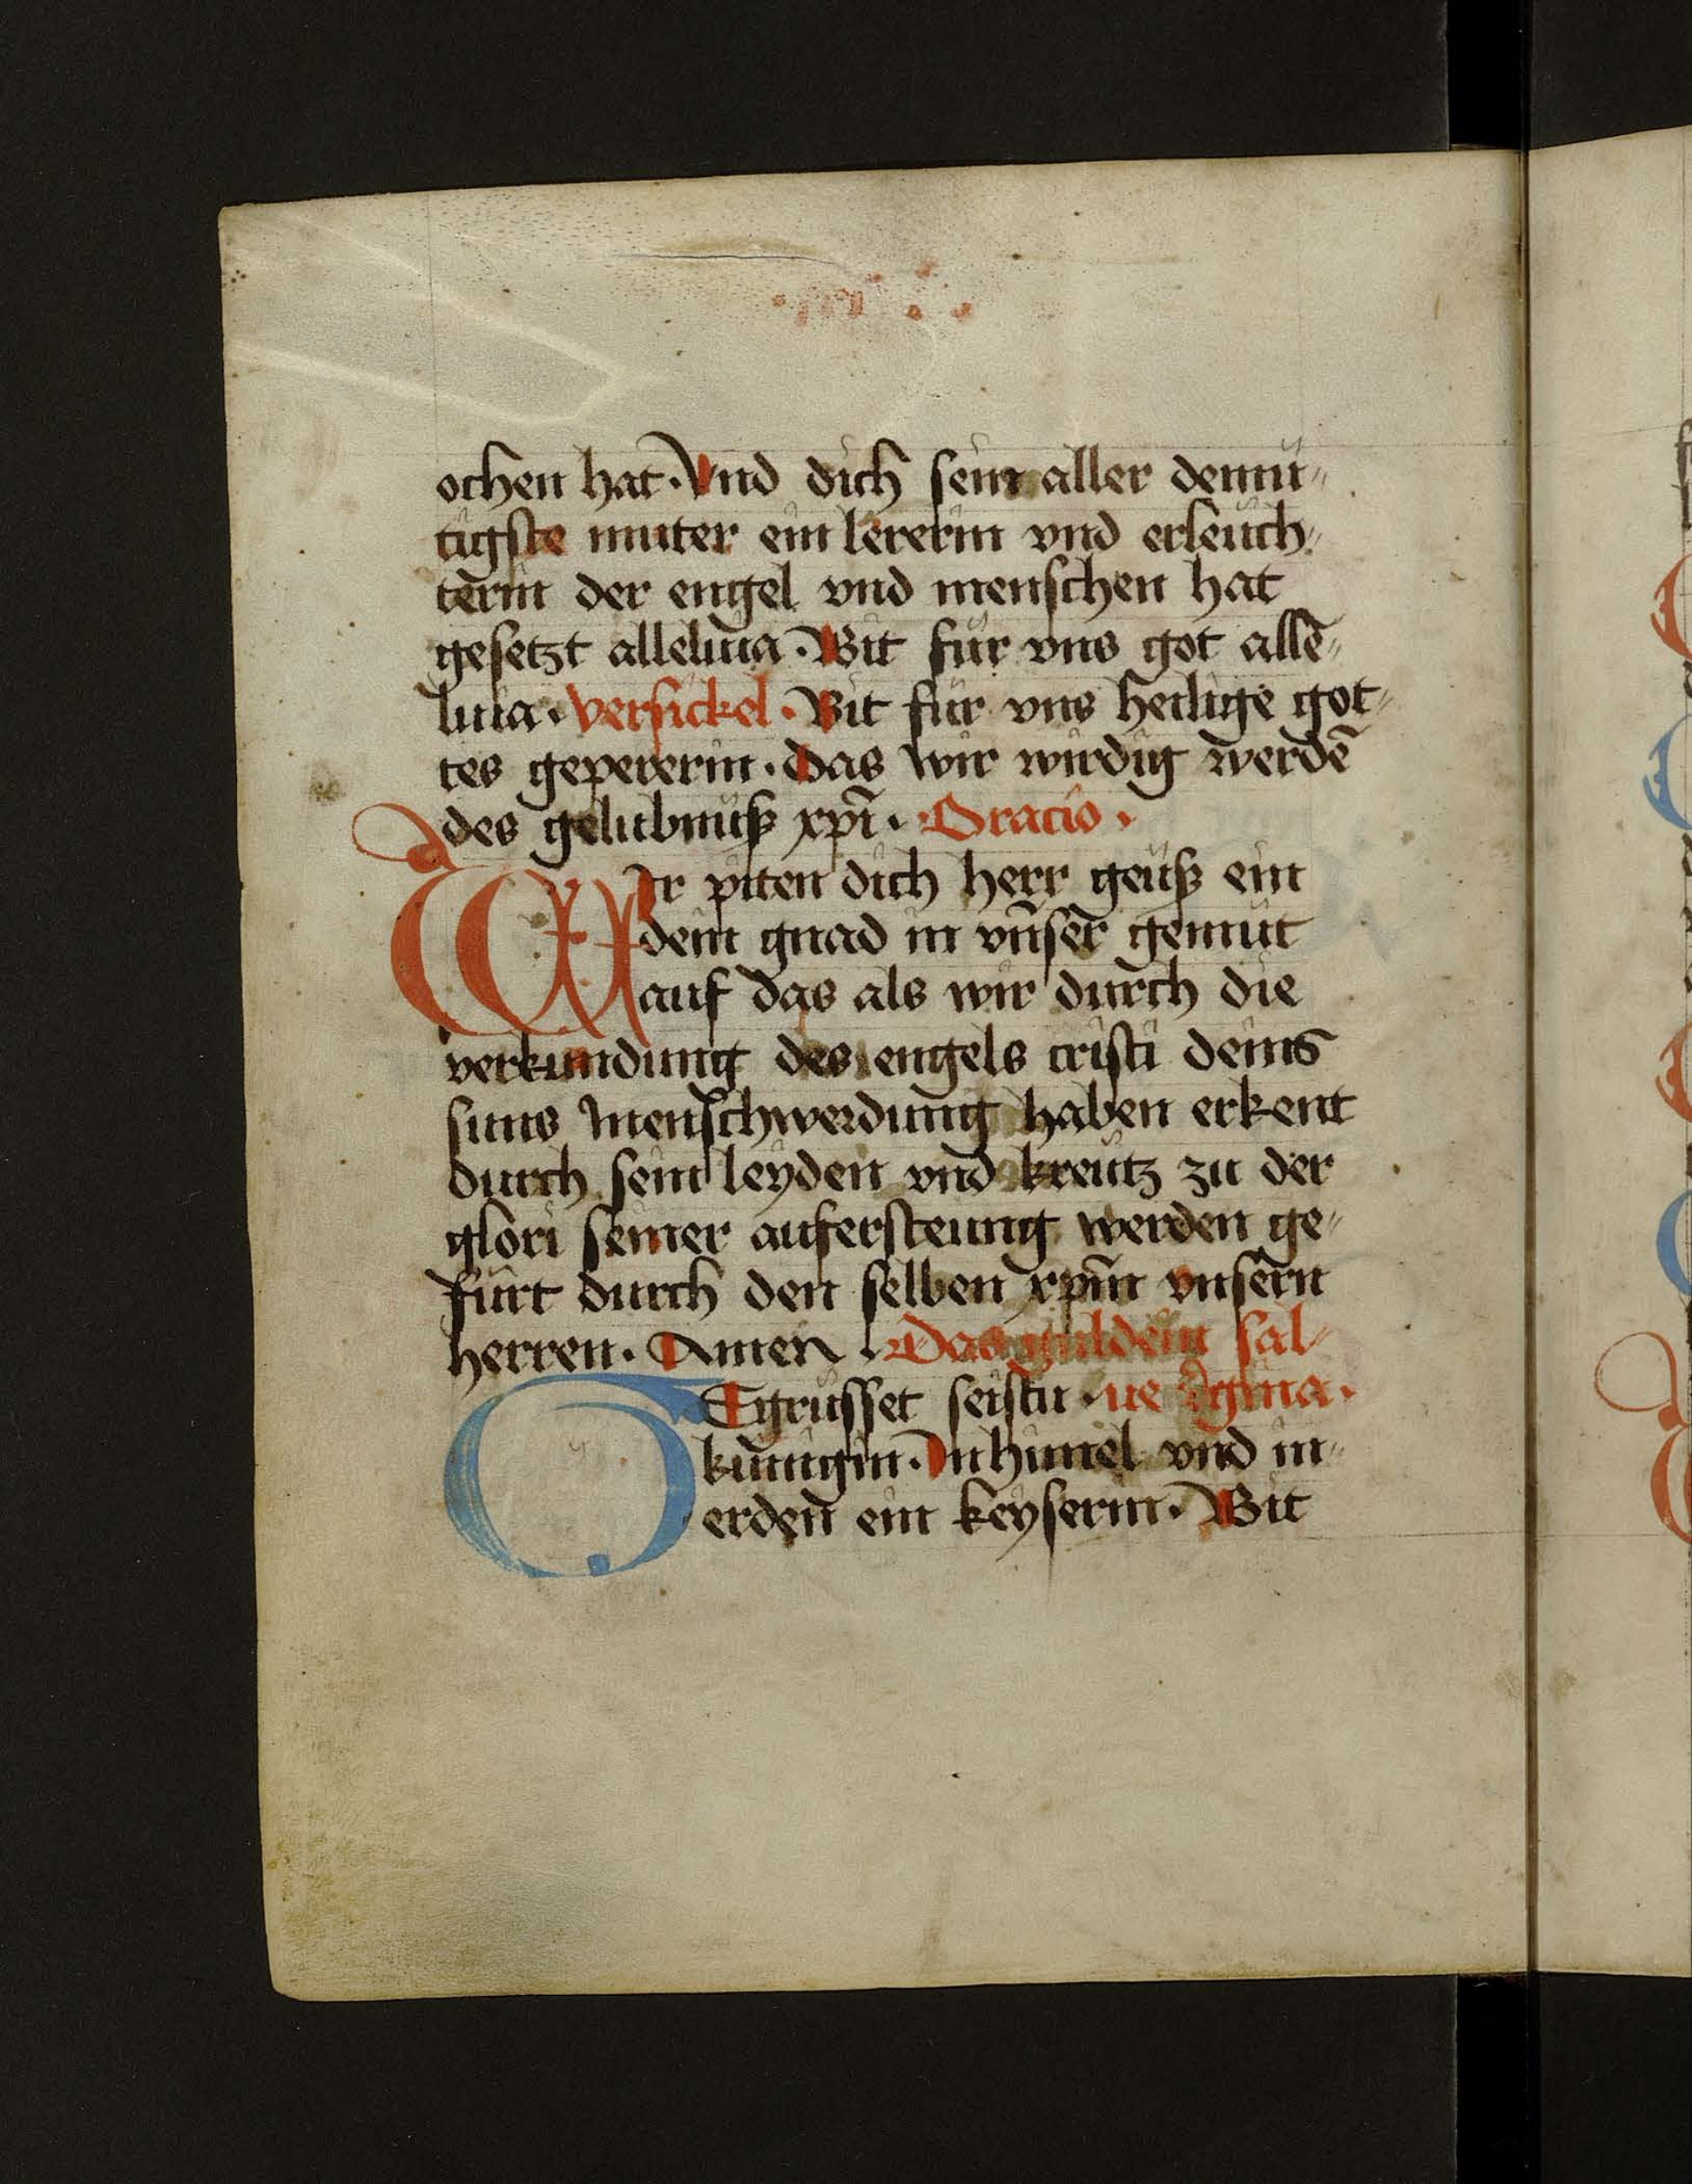 ochen hat · Vnd dich sein aller demü〃
tigste muter ein lererin vnd erleuch〃
terin der engel vnd menschen hat
gesetzt alleluia · Bit für vns got allē〃
luia · versickel · Bit für vns heilige got〃
tes gepererin · Das wir wirdig werdē
des gelubnuß xp̄i · Oracio ·
WIr piten dich herr geuß ein
dein gnad in vn̄ser gemüt
auf das als wir durch die
verkundung des engels cristi deins
suns menschwerdung haben erkent
durch sein leyden vnd kreutz zu der
glori seiner aufersteung werden ge〃
fürt durch den selben xp̄m vnsern
herren · Amen · Das gulden sal〃
GEgrüsset seistu · ue r̄gina ·
künigin · In himel vnd in〃
erden ein keyserin · Bit